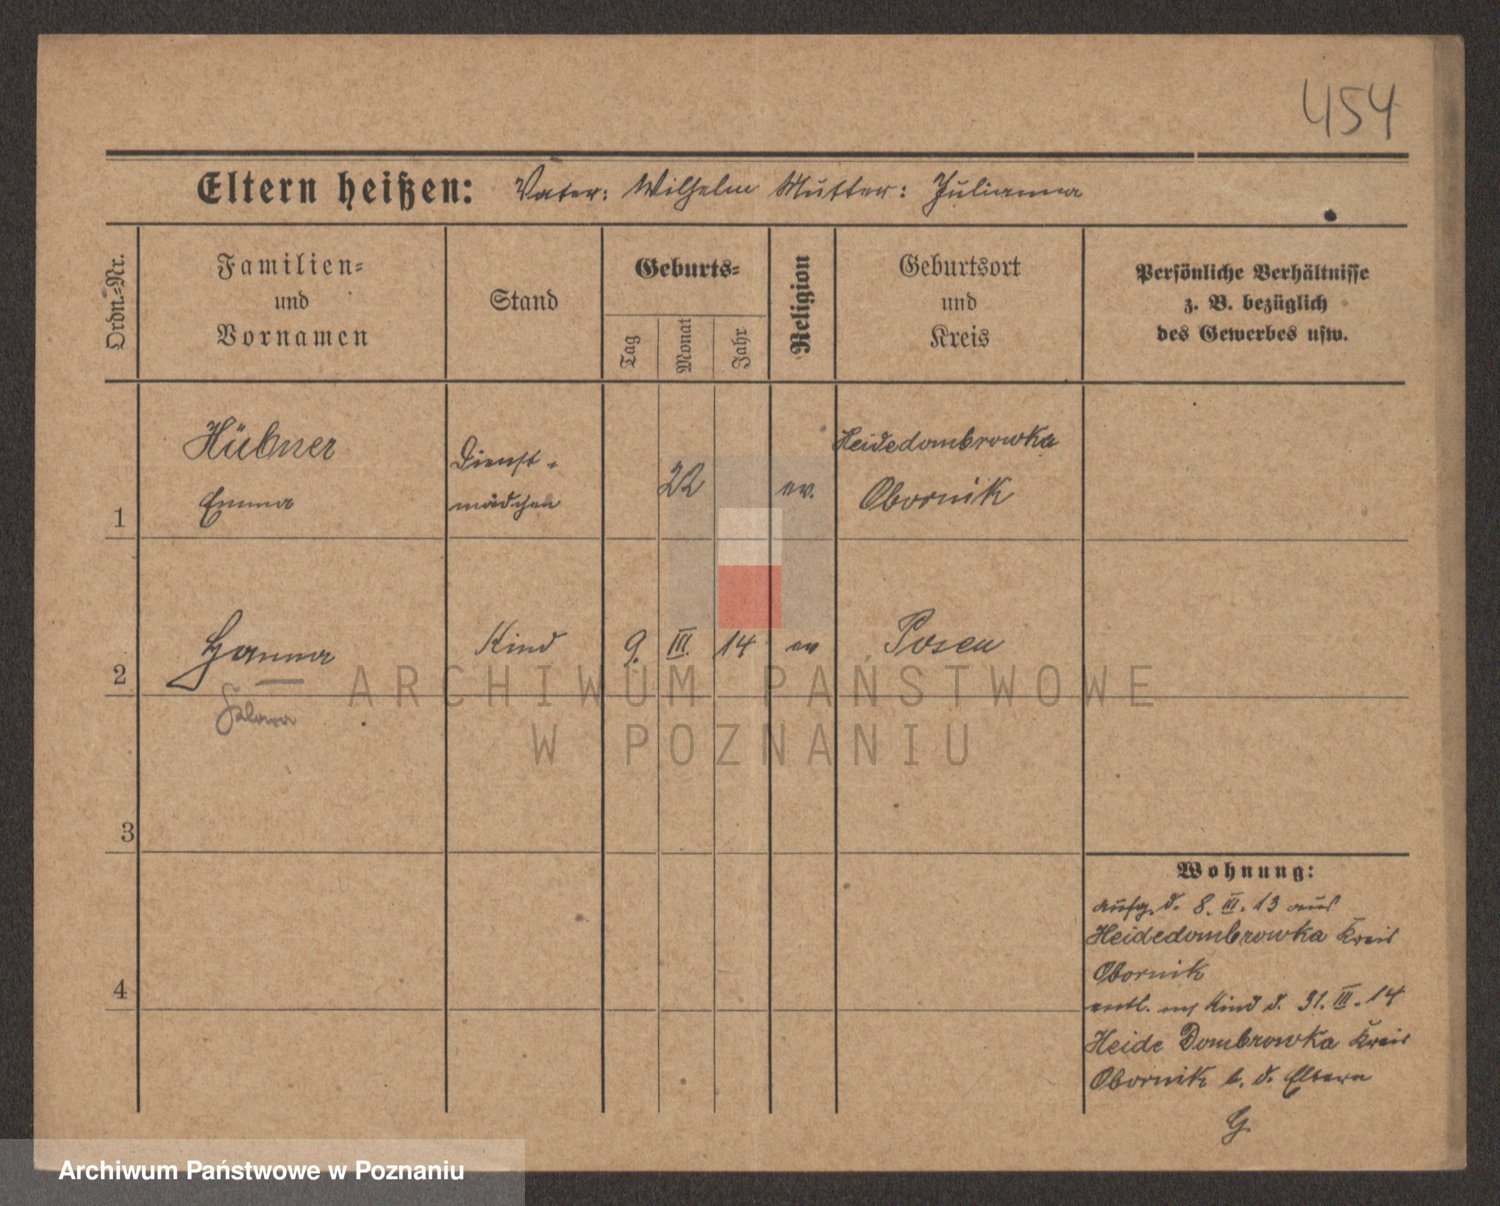 454
Eltern heißen: Vater: Wilhelm Mutter: Julianna
Ordn.-Nr.
Familien-
und
Vornamen
Stand
Geburts-
Tag
Monat
Jahr
Religion
Geburtsort
und
Kreis
Persönliche Verhältnisse
z. B. bezüglich
des Gewerbes usw.
1
Hübner
Emma
Dienst-
mädchen
22
ev.
Heidedombrowka
Obornik
2
Hanna
Kind
9. III. 14
ev
Posen
Klara
3
4
Wohnung:
aufg. d. 8. III. 13 aus
Heidedombrowka Kreis
Obornik
entl. m/ Kind d. 31. III. 14
Heide Dombrowka Kreis
Obornik b. d. Eltern
G
ARCHIWUM PAŃSTWOWE
W POZNANIU
Archiwum Państwowe w Poznaniu